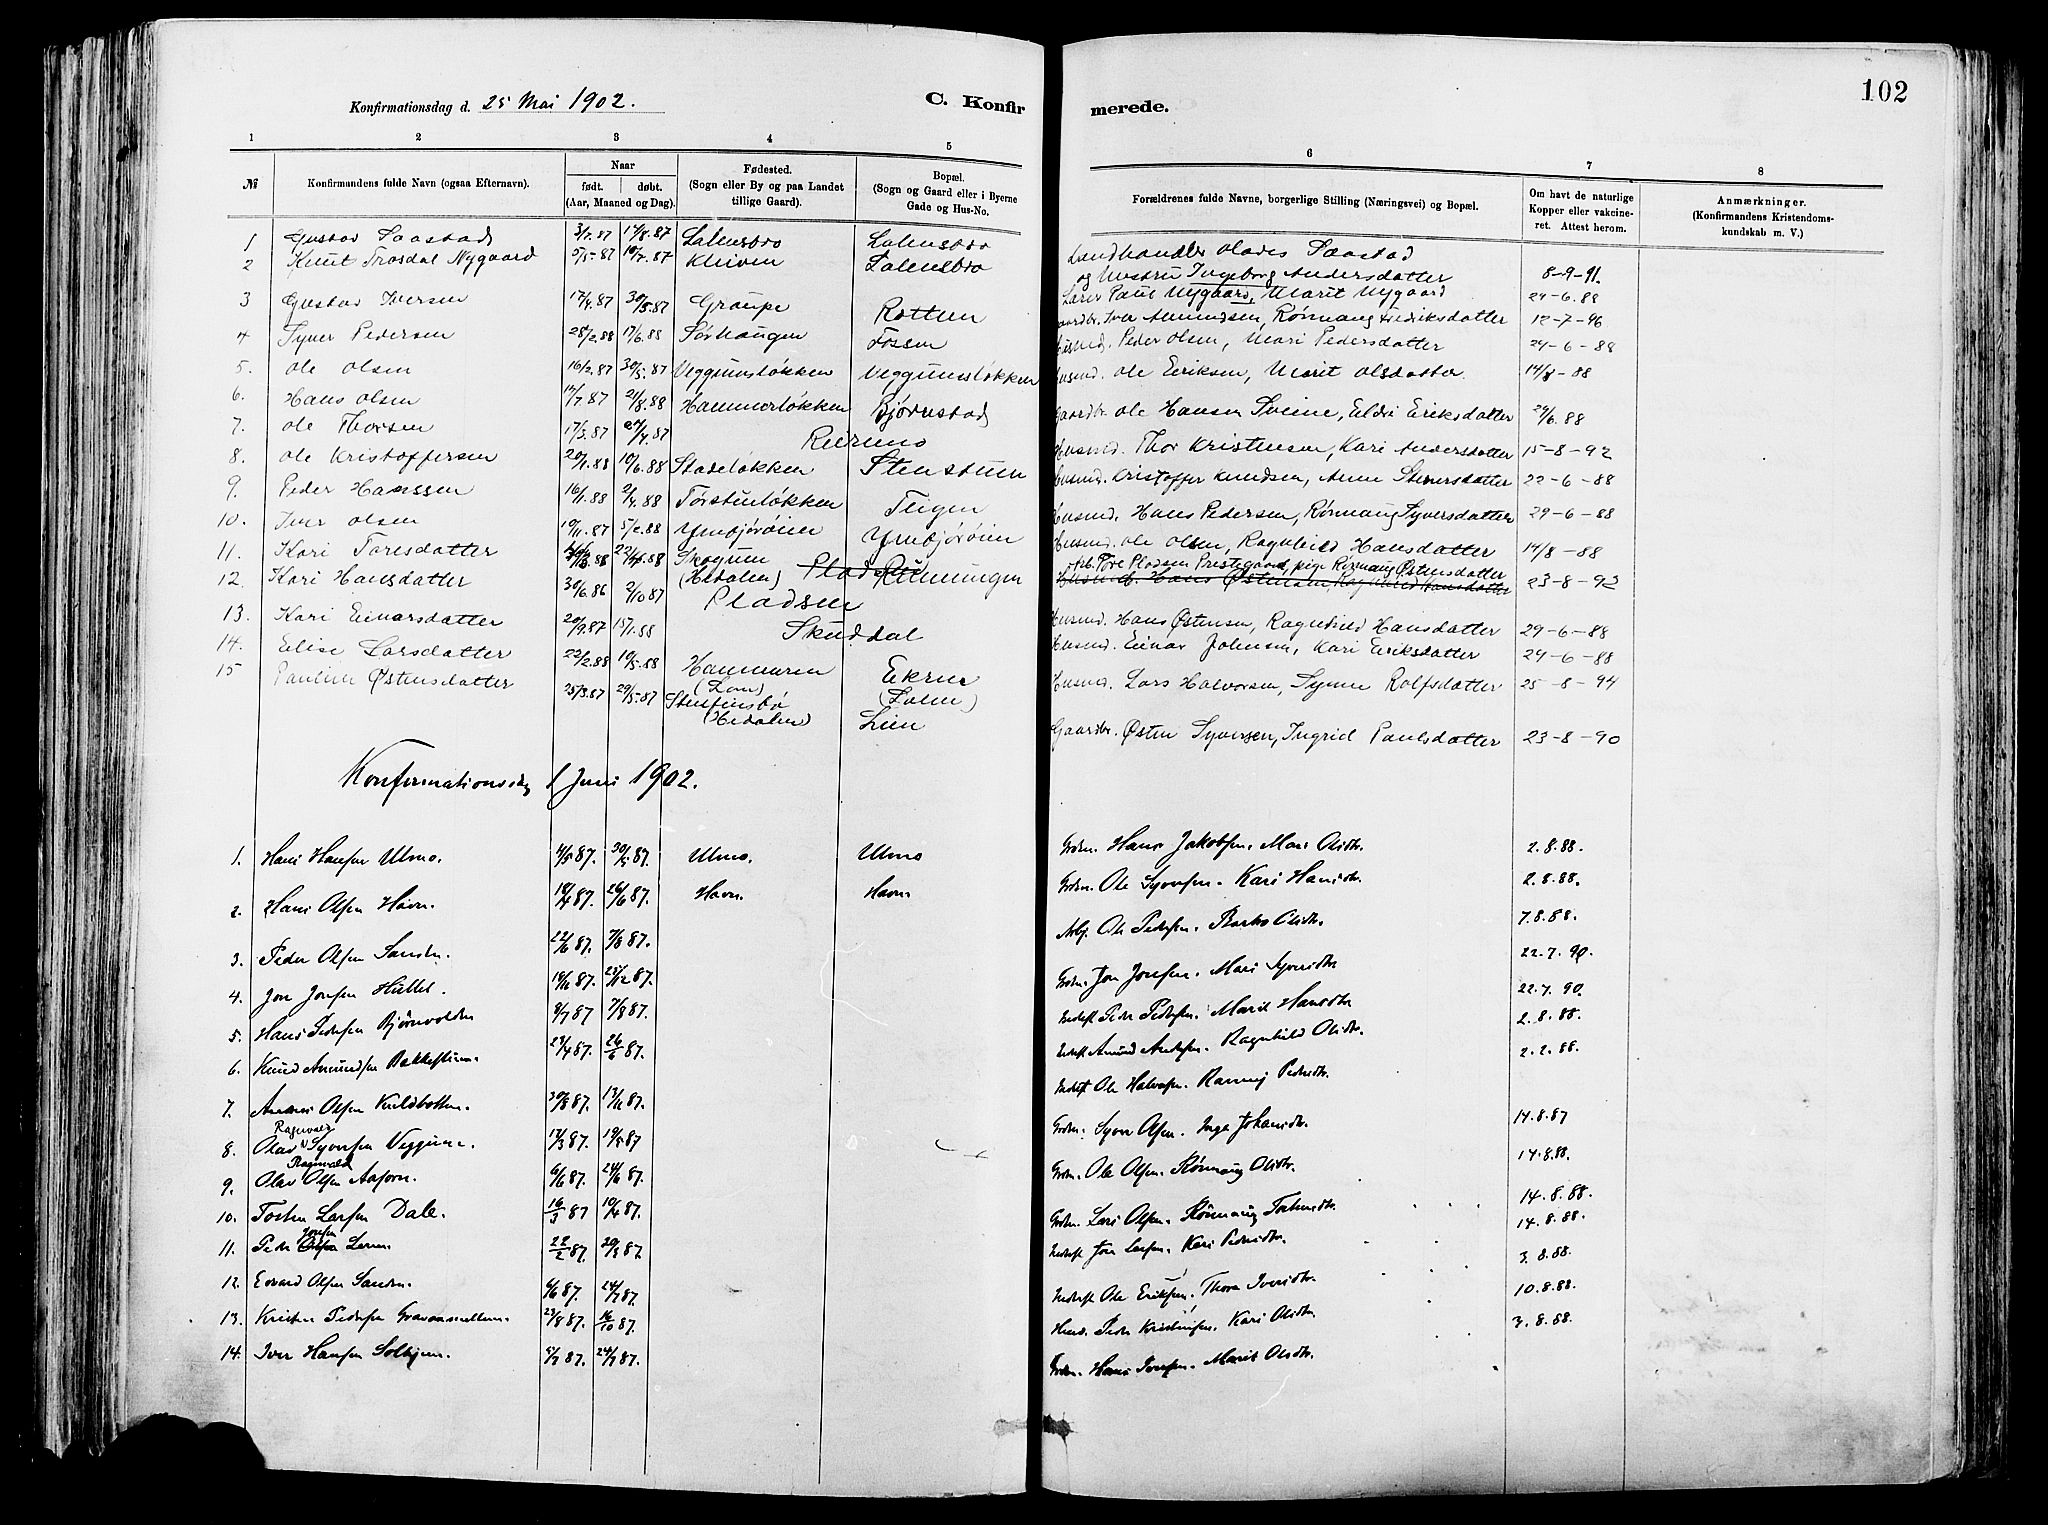 102
Konfirmationsdag d. 25 Mai 1902.
C. Konfirmerede.
1 2 3 4 5 6 7 8
№
Konfirmandens fulde Navn (ogsaa Efternavn).
Naar
født. døbt.
(Aar, Maaned og Dag).
Fødested.
(Sogn eller By og paa Landet
tillige Gaard).
Bopæl.
(Sogn og Gaard eller i Byerne
Gade og Hus-No.
Forældrenes fulde Navne, borgerlige Stilling (Næringsvei) og Bopæl.
Om havt de naturlige
Kopper eller vakcine-
ret. Attest herom.
Anmærkninger.
(Konfirmandens Kristendoms-
kundskab m. V.)
1 Gustav Saastad 3/7.87 17/8.87 Lalensbro Lalensbro Landhandler Saastad
og Hustru Ingeborg Andersdatter 8-9-91.
2 Knut Trosdal Nygaard 5/5-87 10/7.87 Kleiven Lalensbro Lærer Paul Nygaard, Marit Nygaard 24-6.88
3 Gustav Iversen 17/4.87 30/5.87 Graupe Rotten Iver Amundsen, Rønnaug Fredriksdatter 12-7-96
4 Syver Pedersen 28/2.88 17/6.88 Sørhaugen Fossen Husmd. Peder Olsen, Mari Pedersdatter 24-6-88
5. Ole Olsen 16/2.87 30/5.87 Veggumsløkken Veggumsløkken Husmd. Ole Eriksen, Marit Olsdatter. 14/8-88
6. Hans Olsen 14/7.87 21/8.88 Hammerløkken Bjørnstad Gaardbr. Ole Hansen Sveine, Eldri Eriksdatter 29/6.88
7. Ole Thorsen 17/3.87 24/4.87 Reirmo Husmd. Thor Kristensen, Kari Andersdatter 15-8-92
8. Ole Kristoffersen 20/1.88 10/6.88 Stadeløkken Stenstuen Husmd. Kristoffer Knudsen, Anne Steinersdatter 22-6-88
9. Peder Hanssen 16/1.88 2/4.88 Torstuløkken Teigen Husmd. Hans Pedersen, Rønnaug Syversdatter 29-6-88
10. Iver Olsen 10/11.87 5/2.88 Ymbjørøien Ymbjørøien Husmd. Ole Olsen, Ragnhild Hansdatter 14/8-88
11. Kari Toresdatter 22/4.88 Skogum (Hedalen) Rinningen Tore Pladsen Prestegaard, pige Rønnaug Østensdatter 23-8-93
Husmd. Hans Østensen, Ragnhild Hansdatter
12. Kari Hansdatter 30/6.86 2/10 87 Pladsen Husmd. Hans Østensen, Ragnhild Hansdatter 29-6-88
13. Kari Einarsdatter 20/9.87 15/1.88 Skuddal Husmd. Einar Johnsen, Kari Eriksdatter 29-6-88
14. Elise Larsdatter 22/2.88 10/5.88 Hammeren (Lom) Ekren (Lalm) Husmd. Lars Halvorsen, Synne Rolfsdatter 25-8-94
15 Pauline Østensdatter 25/3.87 29/5.87 Stenfinsbø (Hedalen) Lien Gaardbr. Østen Syversen, Ingrid Paulsdatter 23-8-90
Konfirmationsdag 1 Juni 1902.
1. Hans Hansen Ulmo. 4/5 87. 30/5 87. Ulmo. Ulmo Grdm. Hans Jakobsen. Mari Olsdtr. 2.8.88.
2. Hans Olsen Havn. 18/4 87. 26/6 87. Havn. Havn Grdm. Ole Syversen. Kari Hansdtr. 2.8.88.
3. Peder Olsen Sanden. 22/6 87. 7/8 87. Arb. Ole Pedersen. Olsdtr. 7.8.88.
4. Jon Jonsen Hullet. 18/11 87. 25/12 87. Grdm. Jon Jonsen. Mari Syversdtr. 22.7.90.
5. Hans Pedersen Bjørnvolden 9/7 87 7/8 87. Peder Pedersen. Marit Hansdtr 22.7.90.
6. Knud Amundsen Bakkestuen. 23/4 87. 26/6 87. Amund Andersen. Ragnhild Olsdtr. 2.8.88.
7. Anders Olsen Kveldrotten. 30/8 87. 13/11 87. Ole Halvorsen. Rønnaug Pedersdtr. 2.2.88.
8. Olav Ragnvald Syversen Veggum. 17/3 87. 19/5 87 Grdm. Syver Olsen. Inga Johansdtr. 14.8.87
9. Olav Ragnvald Olsen Aaforn. 6/6 87. 24/6 87. Grdm. Ole Olsen. Rønnaug Olsdtr. 14.8.88.
10. Tosten Larsen Dale. 16/3 87 10/4 87. Grdm. Lars Olsen. Rønnaug Tostensdtr. 14.8.88.
11. Peder Jonsen Leren. 22/2 87. 20/3 87 Jon Larsen. Kari Pedersdtr. 14.8.88.
12. Edvard Olsen Sanden. 6/6 87. 24/7 87. Ole Eriksen. Thora Iversdtr. 3.8.88.
13. Kristen Pedersen 23/8 87. 16/10 87. Husm. Peder Kristensen. Kari Olsdtr. 10.8.88.
14. Iver Hansen Solhjem. 5/7 87. 24/7 87. Grdm. Hans Iversen. Marit Olsdtr. 3.8.88.